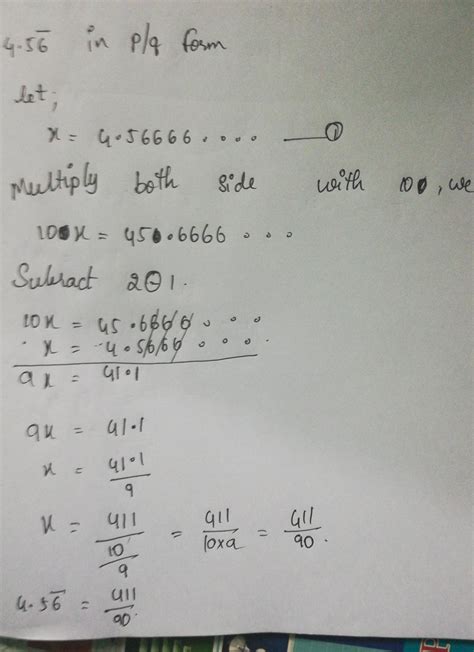 4.56̅ in P/q form
let;
x = 4.56666.... ——①
Multiply both side with 10, we
10x = 45.6666...
Subract 2 ⊖ 1.
10x = 45.6666...
x = -4.5666...
9x = 41.1
9x = 41.1
x = 41.1/9
x = 411/10/9 = 411/10x9 = 411/90.
4.56̅ = 411/90.